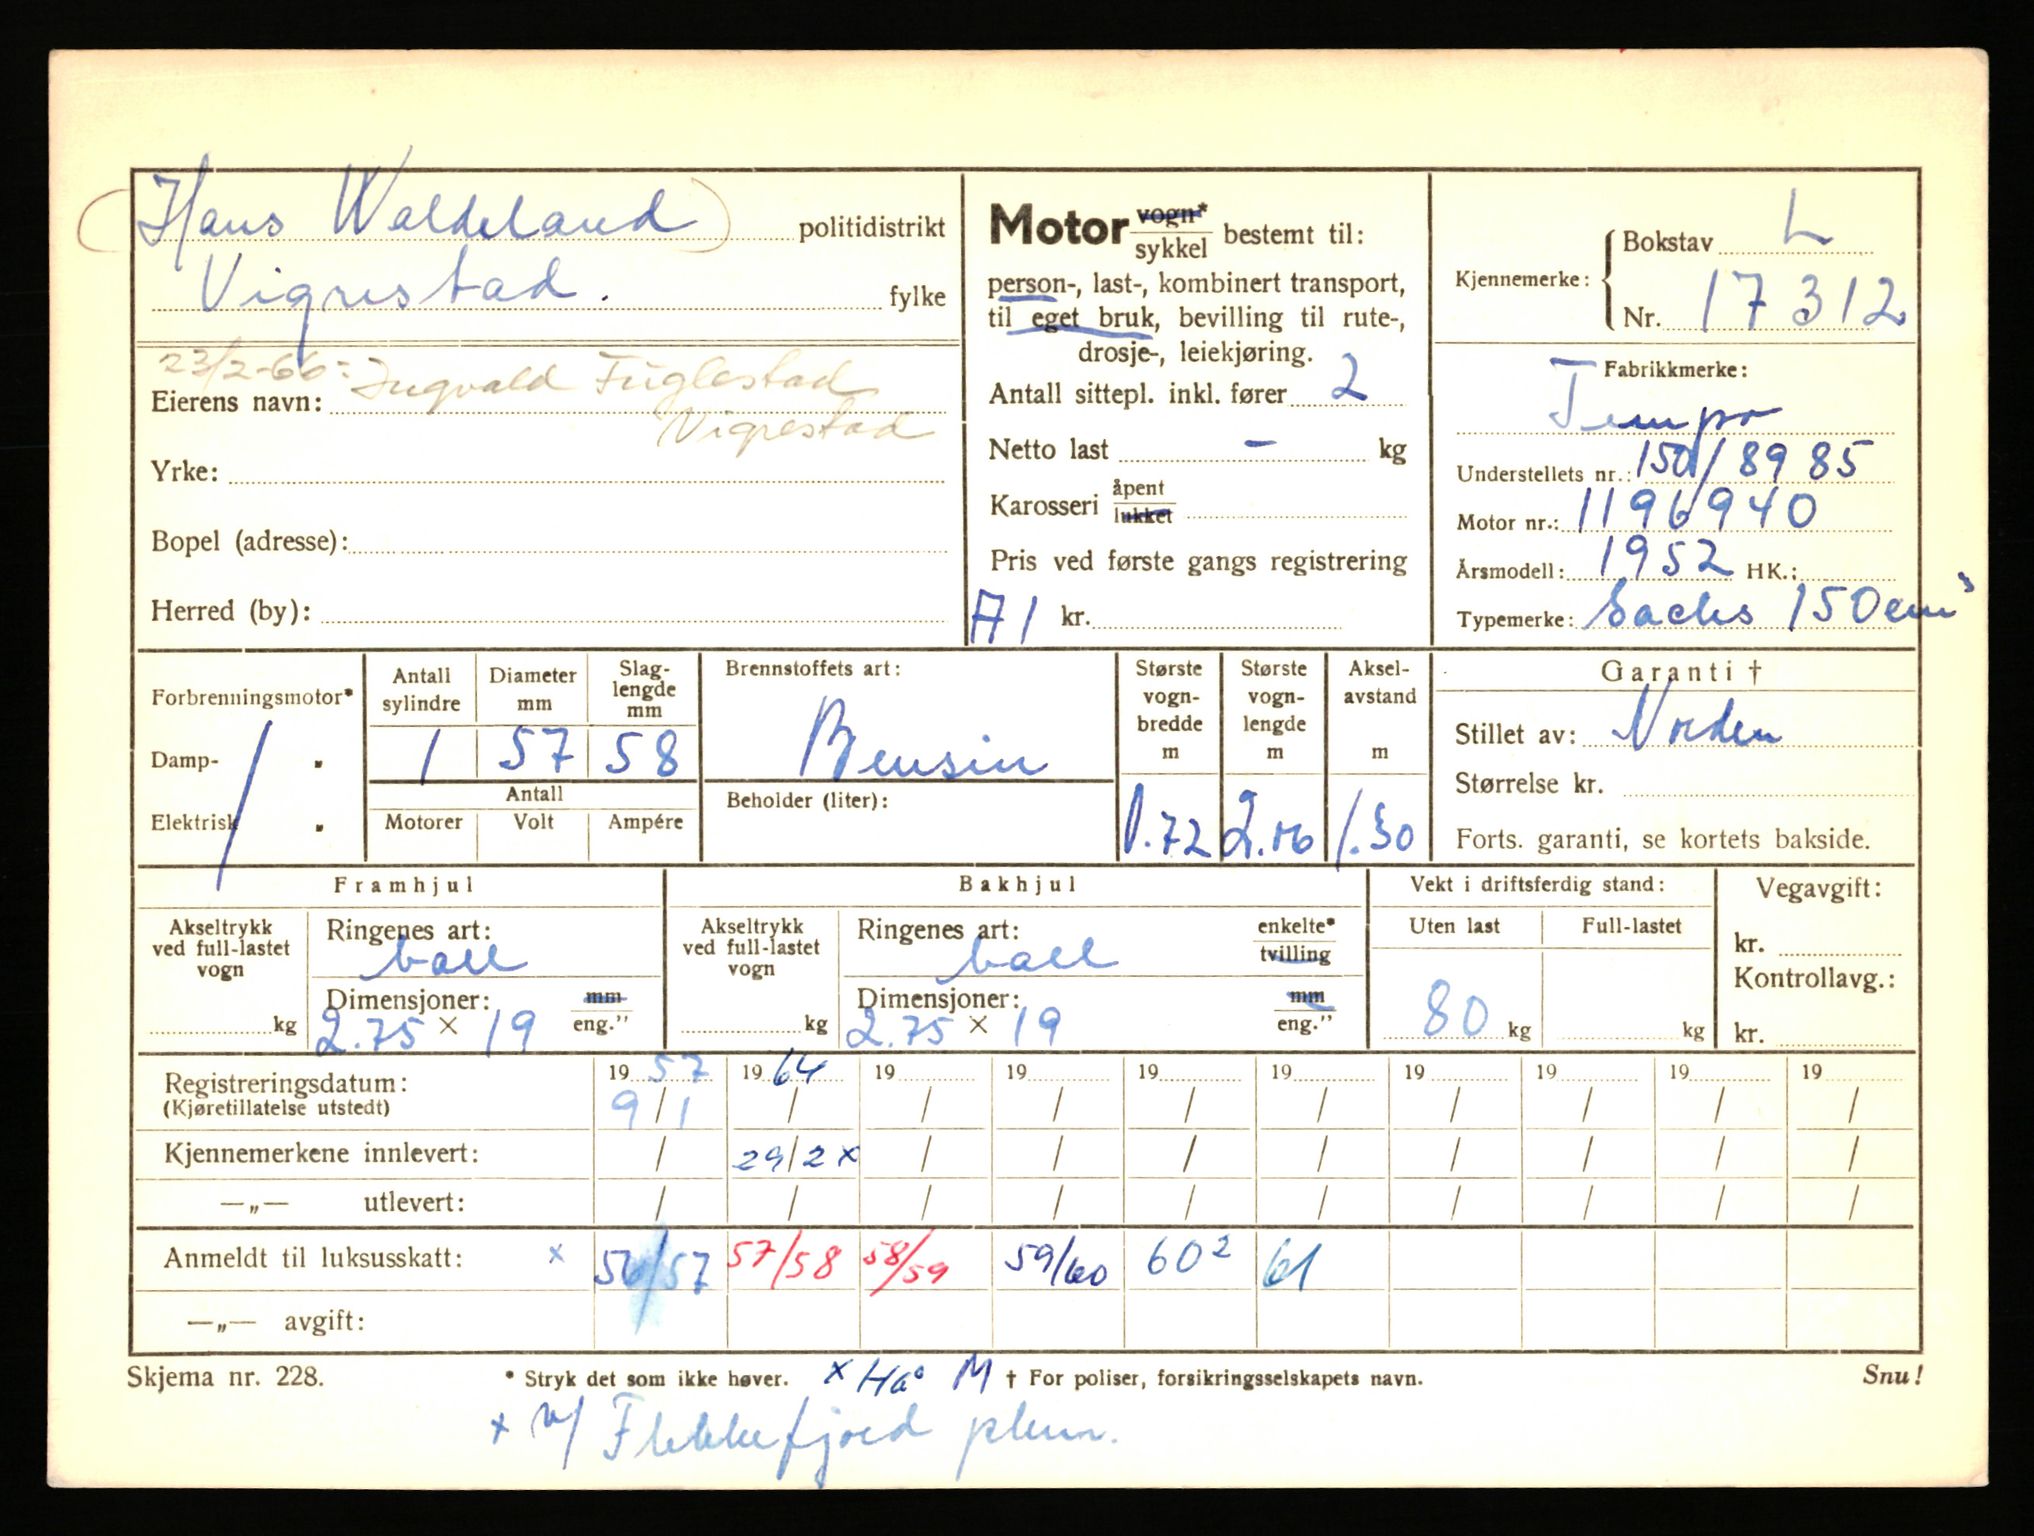 (Hans Waldeland) politidistrikt
Vigrestad. fylke
23/2-66: Ingvald Fuglestad
Eierens navn:
Vigrestad
Yrke:
Bopel (adresse):
Herred (by):
Motor vogn* sykkel bestemt til:
person-, last-, kombinert transport,
til eget bruk, bevilling til rute-,
drosje-, leiekjøring.
Antall sittepl. inkl. fører 2
Netto last - kg
Karosseri åpent lukket
Pris ved første gangs registrering
A1 kr.
Kjennemerke: Bokstav L
Nr. 17312
Fabrikkmerke:
Tempo
Understellets nr.: 150/8985
Motor nr.: 1196940
Årsmodell: 1952 HK.:
Typemerke: Sachs 150cm³
Forbrenningsmotor*
Damp- "
Elektrisk "
Antall sylindre 1
Diameter mm 57
Slaglengde mm 58
Antall
Motorer Volt Ampére
Brennstoffets art:
Bensin
Beholder (liter):
Største vognbredde m 0.72
Største vognlengde m 2.06
Akselavstand m 1.30
Garanti †
Stillet av: Norden
Størrelse kr.
Forts. garanti, se kortets bakside.
Framhjul
Akseltrykk ved full-lastet vogn kg
Ringenes art: ball
Dimensjoner: mm eng."
2.75 × 19
Bakhjul
Akseltrykk ved full-lastet vogn kg
Ringenes art: enkelte* tvilling
ball
Dimensjoner: mm eng."
2.75 × 19
Vekt i driftsferdig stand:
Uten last Full-lastet
80 kg kg
Vegavgift:
kr.
Kontrollavg.:
kr.
Registreringsdatum: 19 57 19 64 19 19 19 19 19 19 19 19
(Kjøretillatelse utstedt) 9/1 / / / / / / / / /
Kjennemerkene innlevert: / 29/2 x / / / / / / / /
—„— utlevert: / / / / / / / / / /
Anmeldt til luksusskatt: x 56/57 57/58 58/59 59/60 60² 61
—„— avgift:
Skjema nr. 228. * Stryk det som ikke høver. x Ha° M † For poliser, forsikringsselskapets navn. Snu!
x v/ Flekkefjord